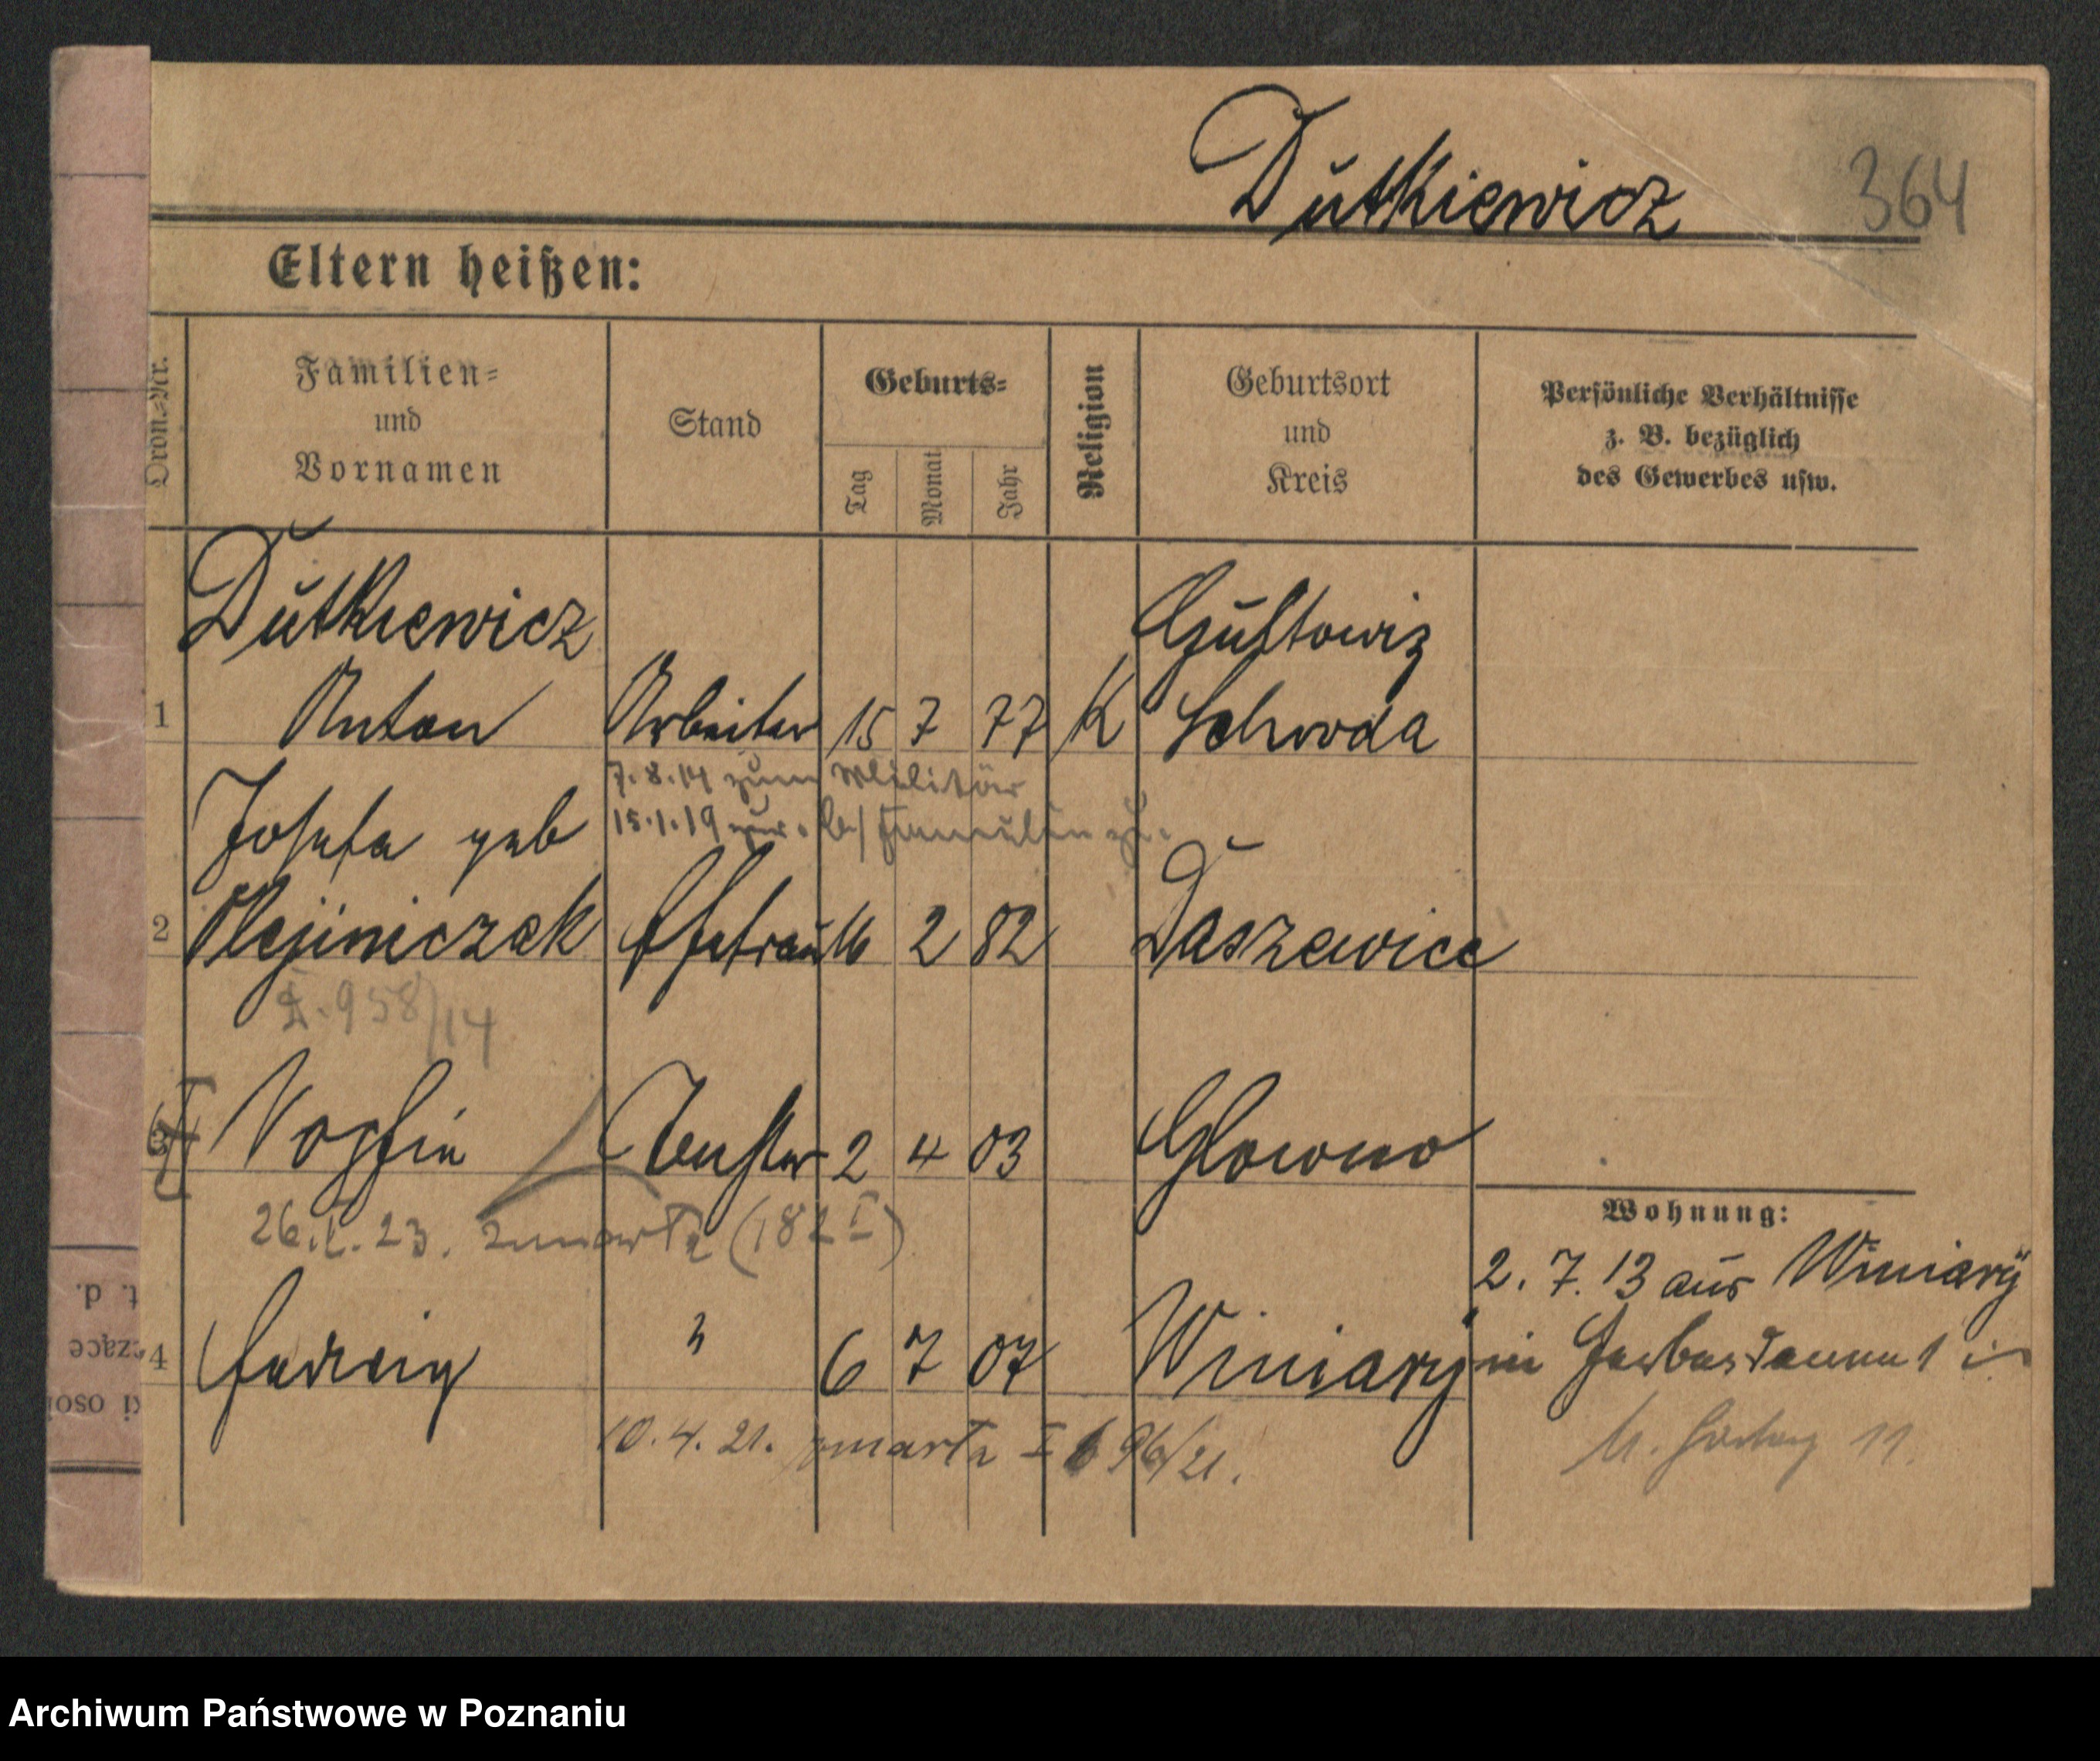 Dutkiewicz 364
Eltern heißen:
Ordn.=Nr.
Familien=
und
Vornamen
Stand
Geburts=
Tag
Monat
Jahr
Religion
Geburtsort
und
Kreis
Persönliche Verhältnisse
z. B. bezüglich
des Gewerbes usw.
Dutkiewicz Gultowiz
1 Anton Arbeiter 15 7 77 K Schroda
7.8.14 zum Militär
15.1.19 zur. b/ Familie
Josefa geb
2 Olejiniczak Ehefrau 16 2 82 Daszewice
I. 958/14
3 Sofia Tochter 2 4 03 Glowno
26. I. 23. zmarła (182 I)
4 Hedwig " 6 7 07 Winiary
10. 4. 21. zmarła I 696/21.
Wohnung:
2. 7. 13 aus Winiary
in 1
11.
t. d.
czące
ki osoi
Archiwum Państwowe w Poznaniu